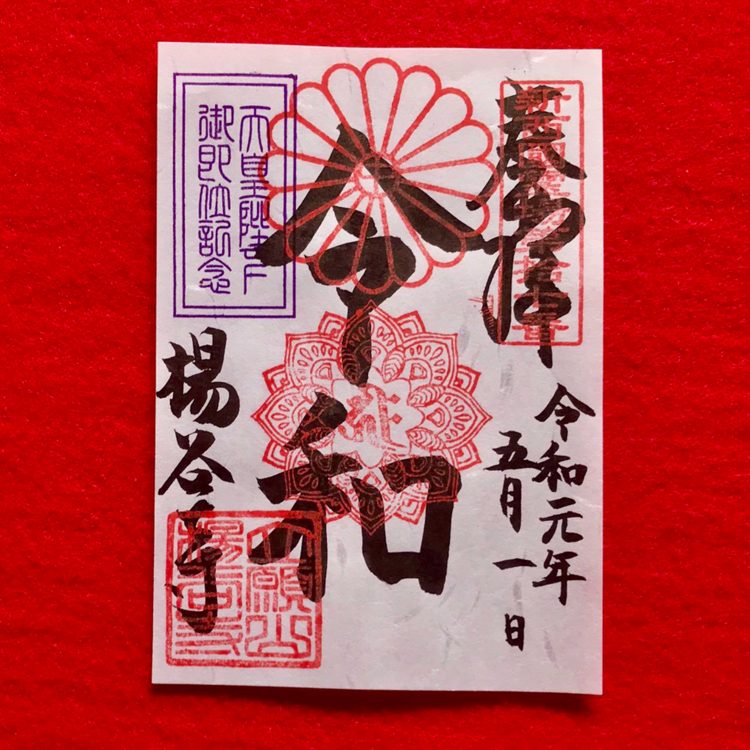 奉拝
令和元年
五月一日
令和
天皇陛下
御即位記念
楊谷寺
立願山
楊谷寺